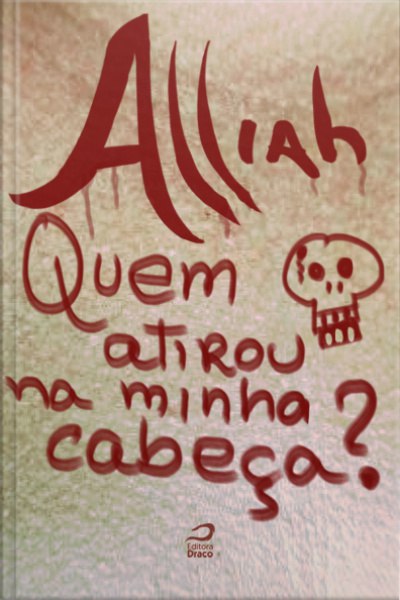 Alliah
Quem
atirou
na minha
cabeça?
Editora
Draco